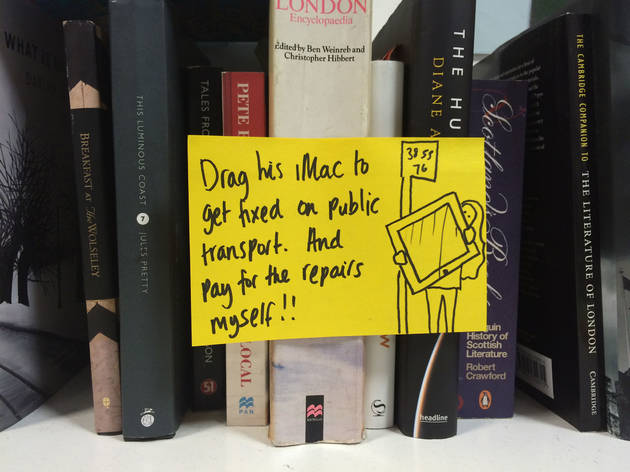 WHAT
BREAKFAST AT The WOLSEY
THIS LUMINOUS COAST 7 JULES PRETTY
TALES FRO
ON
51
PETE
LOCAL
PAN
LONDON
Encyclopaedia
Edited by Ben Weinreb and
Christopher Hibbert
Drag his iMac to
get fixed on public
transport. And
pay for the repairs
myself!!
38 55
76
THE HU
DIANE A
headline
Scotland's
guin
History of
Scottish
Literature
Robert
Crawford
THE CAMBRIDGE COMPANION TO THE LITERATURE OF LONDON
CAMBRIDGE